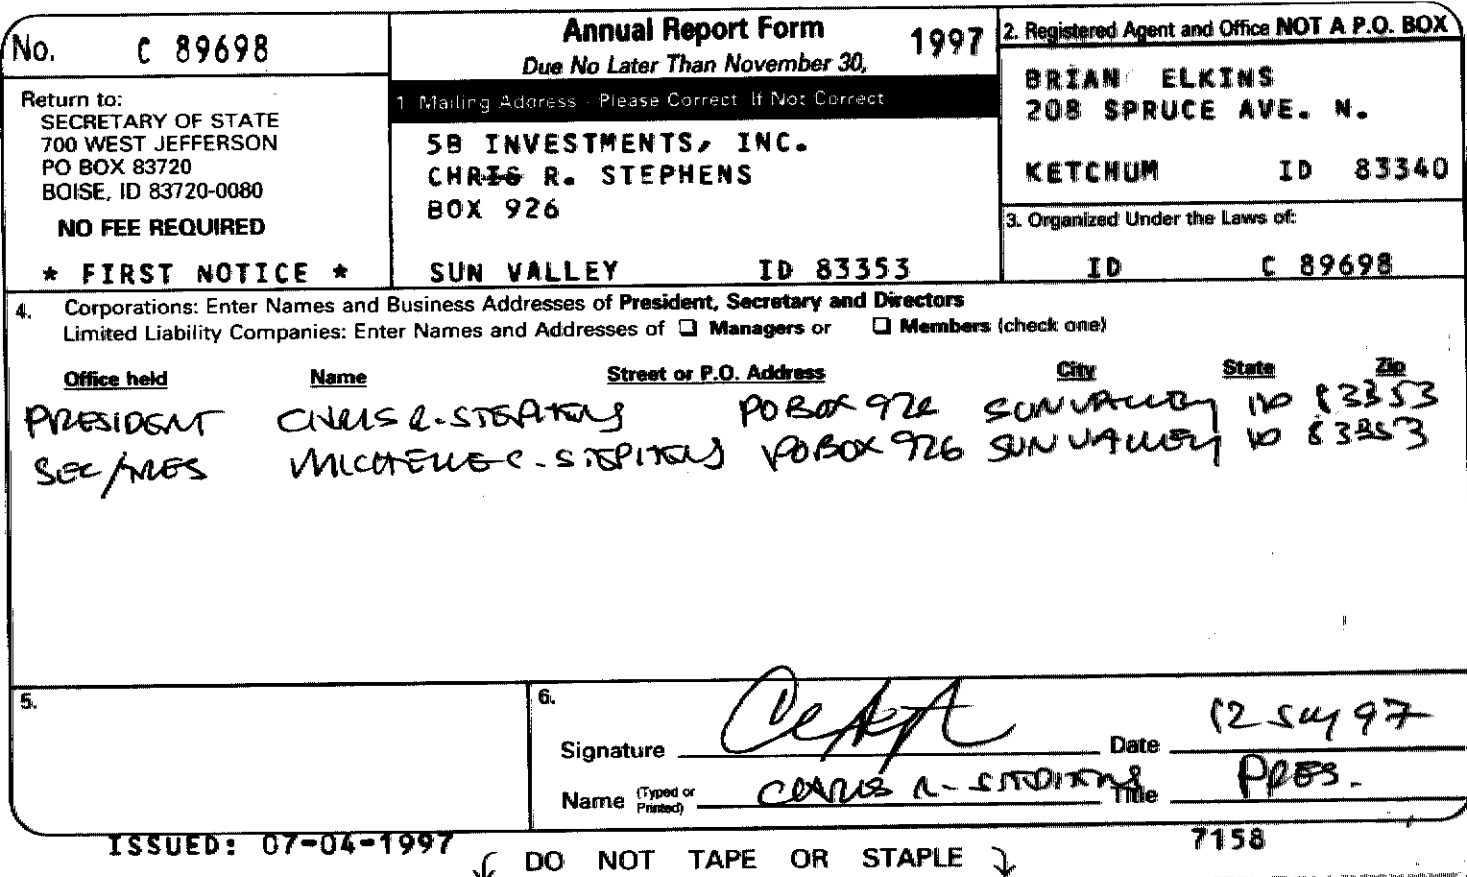 No. C 89698
Return to:
SECRETARY OF STATE
700 WEST JEFFERSON
PO BOX 83720
BOISE, ID 83720-0080
NO FEE REQUIRED
* FIRST NOTICE *
Annual Report Form 1997
Due No Later Than November 30,
1 Mailing Address - Please Correct If Not Correct
5B INVESTMENTS, INC.
CHRIS R. STEPHENS
BOX 926
SUN VALLEY ID 83353
2. Registered Agent and Office NOT A P.O. BOX
BRIAN ELKINS
208 SPRUCE AVE. N.
KETCHUM ID 83340
3. Organized Under the Laws of:
ID C 89698
4. Corporations: Enter Names and Business Addresses of President, Secretary and Directors
Limited Liability Companies: Enter Names and Addresses of ❑ Managers or ❑ Members (check one)
Office held Name Street or P.O. Address City State Zip
PRESIDENT CHRIS R. STEPHENS PO BOX 926 SUN VALLEY ID 83353
SEC/TRES MICHELLE C. STEPHENS PO BOX 926 SUN VALLEY ID 83353
5.
6.
Signature Date 12 97
Name (Typed or Printed) CHRIS R. STEPHENS Title PRES.
ISSUED: 07-04-1997 7158
DO NOT TAPE OR STAPLE